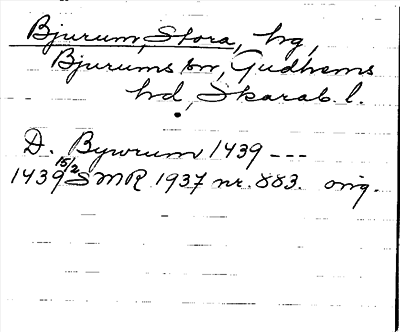 Bjurum, Stora, hg,
Bjurums sn, Gudhems
hd, Skarab. l.
D. Bywrum 1439 ---
1439 15/2 SMR 1937 nr. 883. orig.